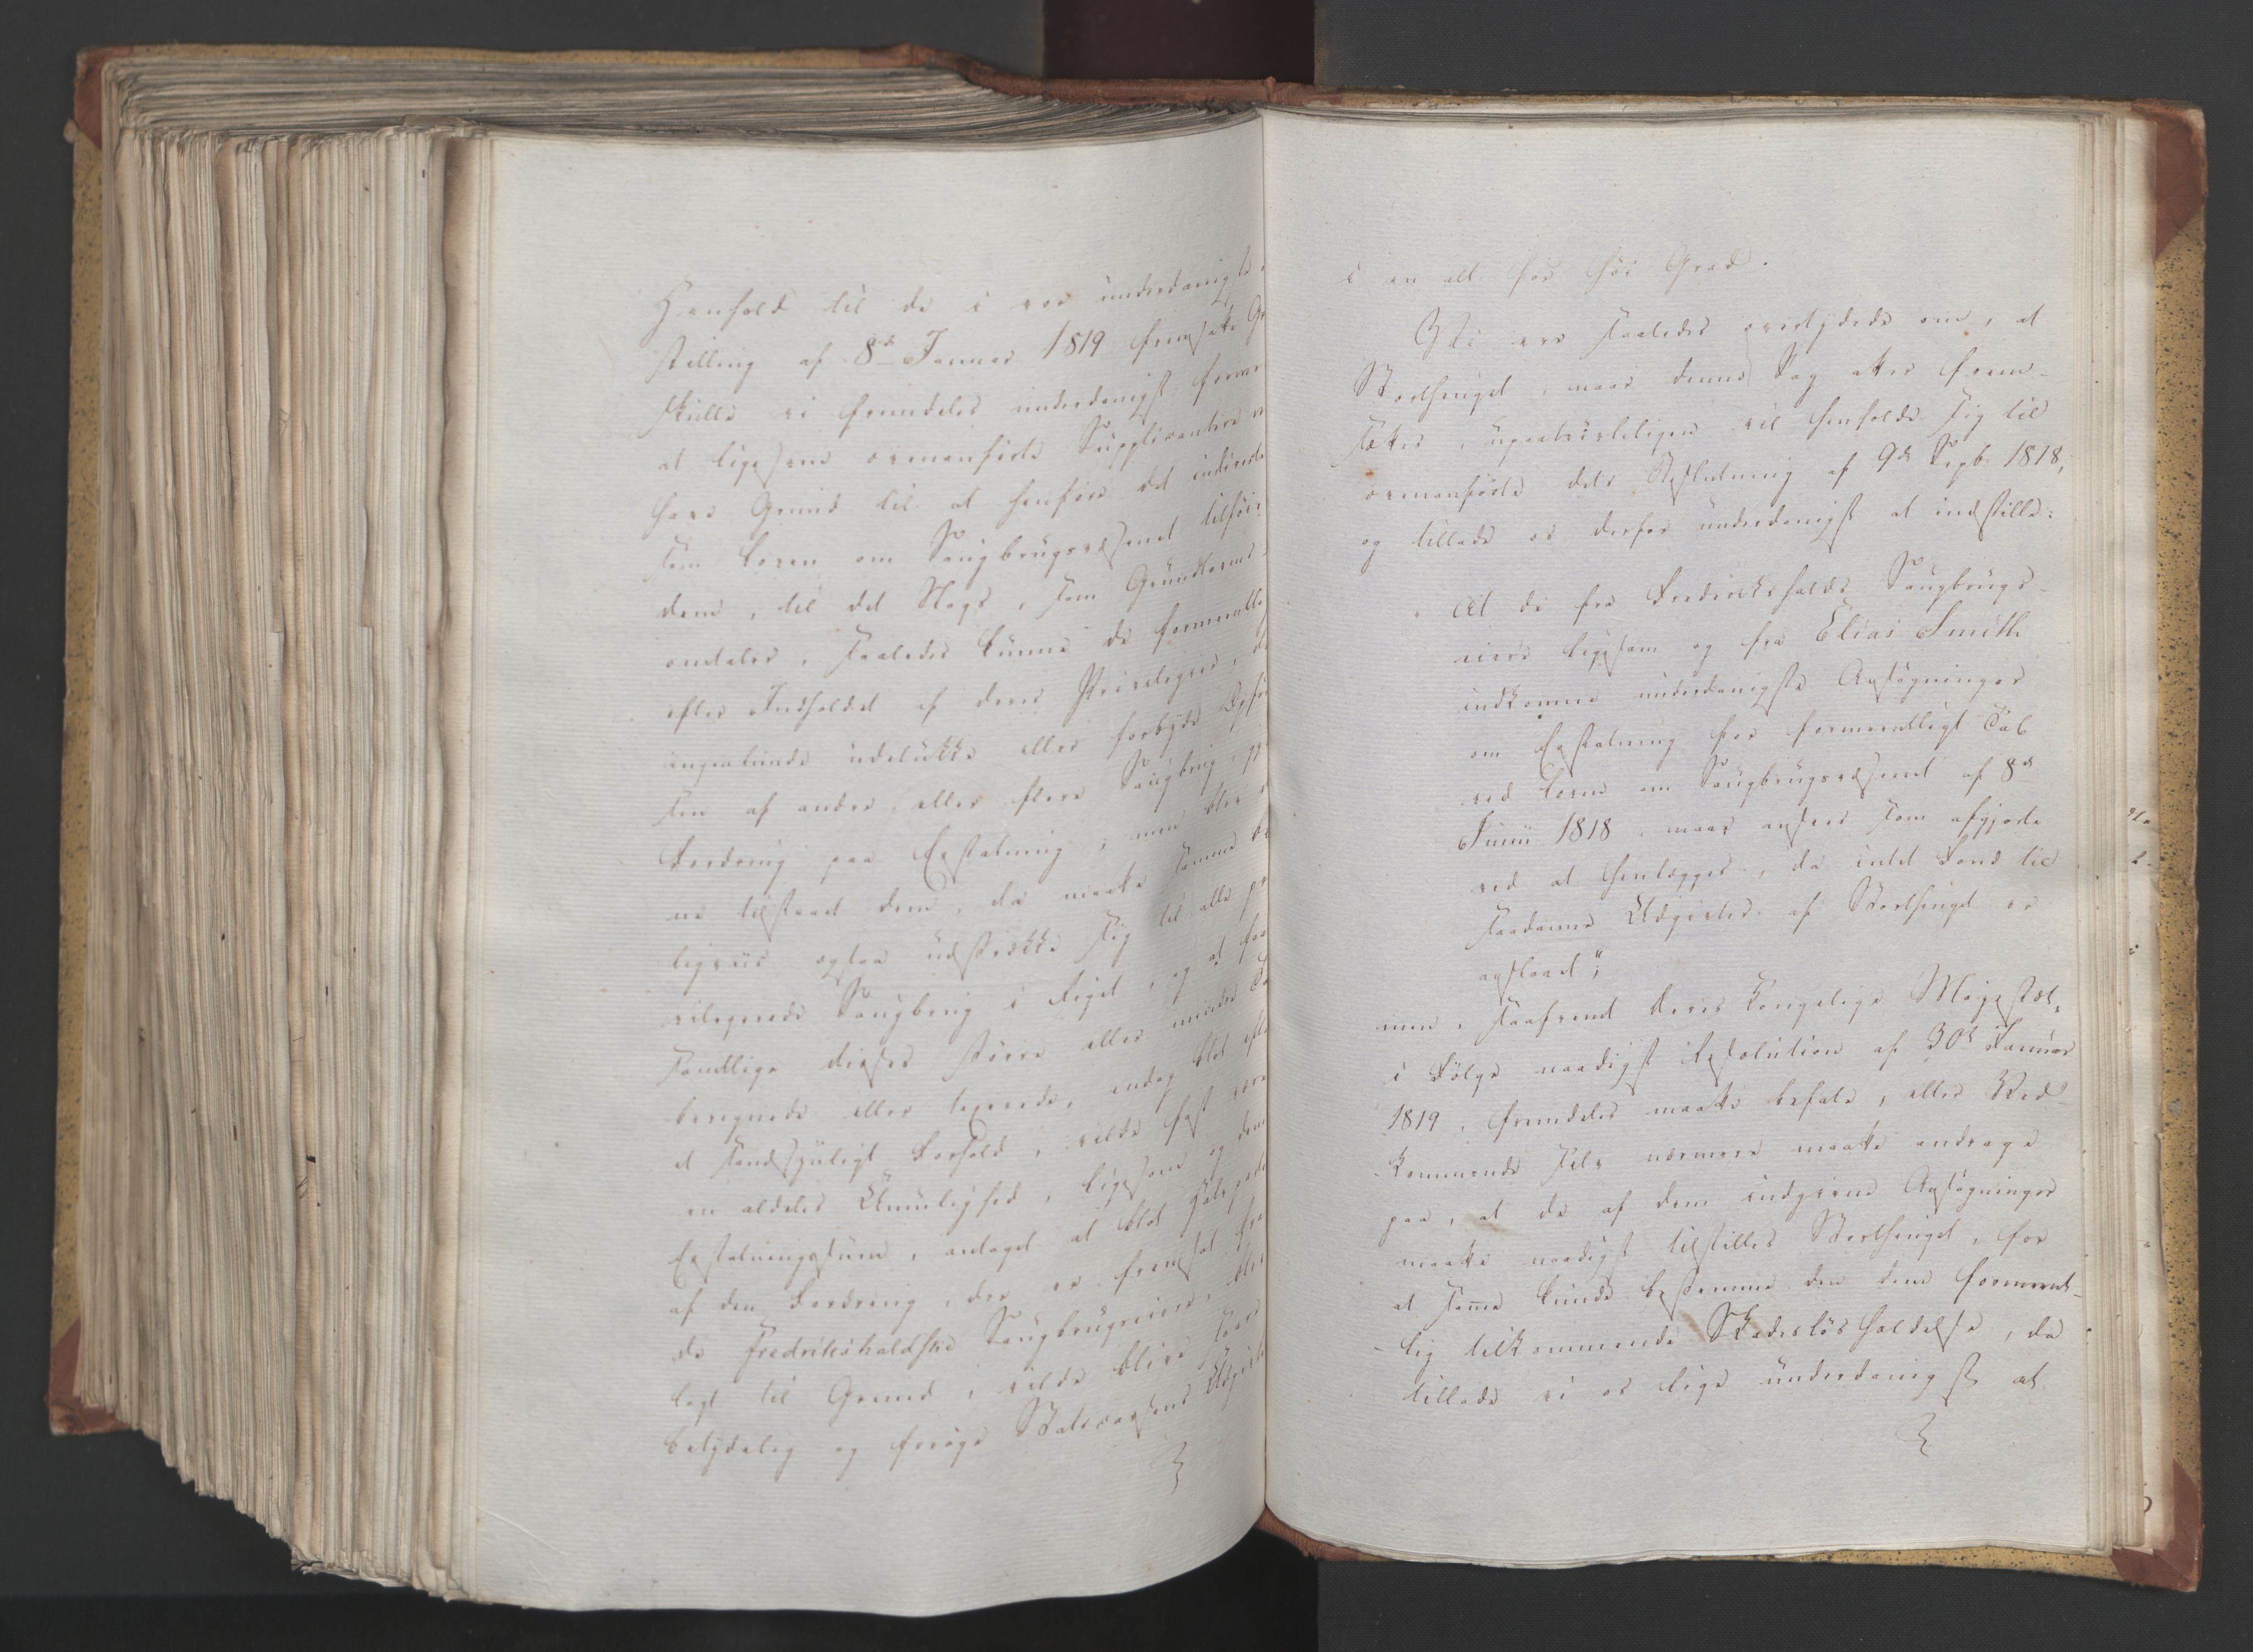 Henhold til de i vor underdanigste
stilling af 8de Januar 1819 fremsatte Gr
skulle vi fremdeles underdanigst forme
at ligesom ovenanførte Supplicantere
have Grund til at henføre det indirecte
som Loven om Saugbrugsvæsenet tilføier
dem, til det Slags, som Grundlovens
omtaler, saaledes kunne de formeentlig
efter Indholdet af deres Privilegier,
ingenlunde udelukke eller forbyde Opfør
sen af andre eller flere Saugbrug,
Fordring paa Erstatning; men blev
ne tilstaaet dem, da maatte samme
ligviis ogsaa udstrække sig til alle pr
vilegerede Saugbrug i Riget, og at
samtlige disses større eller mindre Ta
beregnede eller taxerede, endog blot efter
et sandsynligt Forhold, vilde fast være
en aldeles Umulighed, ligesom og den
Erstatningssum, antaget at blot
af den Fordring, der er fremsat fra
de Fredrikshaldske Saugbrugseiere, blev
lagt til Grund, vilde blive saare
betydelig og forøge Statscassens Udgifter
i en alt for høi Grad.
Vi ere saaledes overtydede om, at
Storthinget, naar denne Sag atter frem-
sættes, upaatvivleligen vil henholde sig til
ovenanførte dets Beslutning af 9de Septbr 1818,
og tillade os derfor underdanigst at indstille:
"At de fra Frederikshalds Saugbrugs-
eiere ligesom og fra Elias Smith
indkomne underdanigste Ansøgninger
om Erstatning for formeentligt Tab
ved Loven om Saugbrugsvæsenet af 8de
Junii 1818, maae ansees som afgjorte
ved at henlægges, da intet Fond til
saadanne Udgivter af Storthinget er
anslaaet";
men, saafremt Deres Kongelige Majestæt,
i Følge naadigst Resolution af 30te Januar
1819, fremdeles maatte befale, eller Ved-
kommende selv nærmere maatte andrage
paa, at de af dem indgivne Ansøgninger
maatte naadigst tilstilles Storthinget, for
at samme kunde bestemme den dem formeent-
lig tilkommende Skadesløsholdelse, da
tillade vi os lige underdanigst at